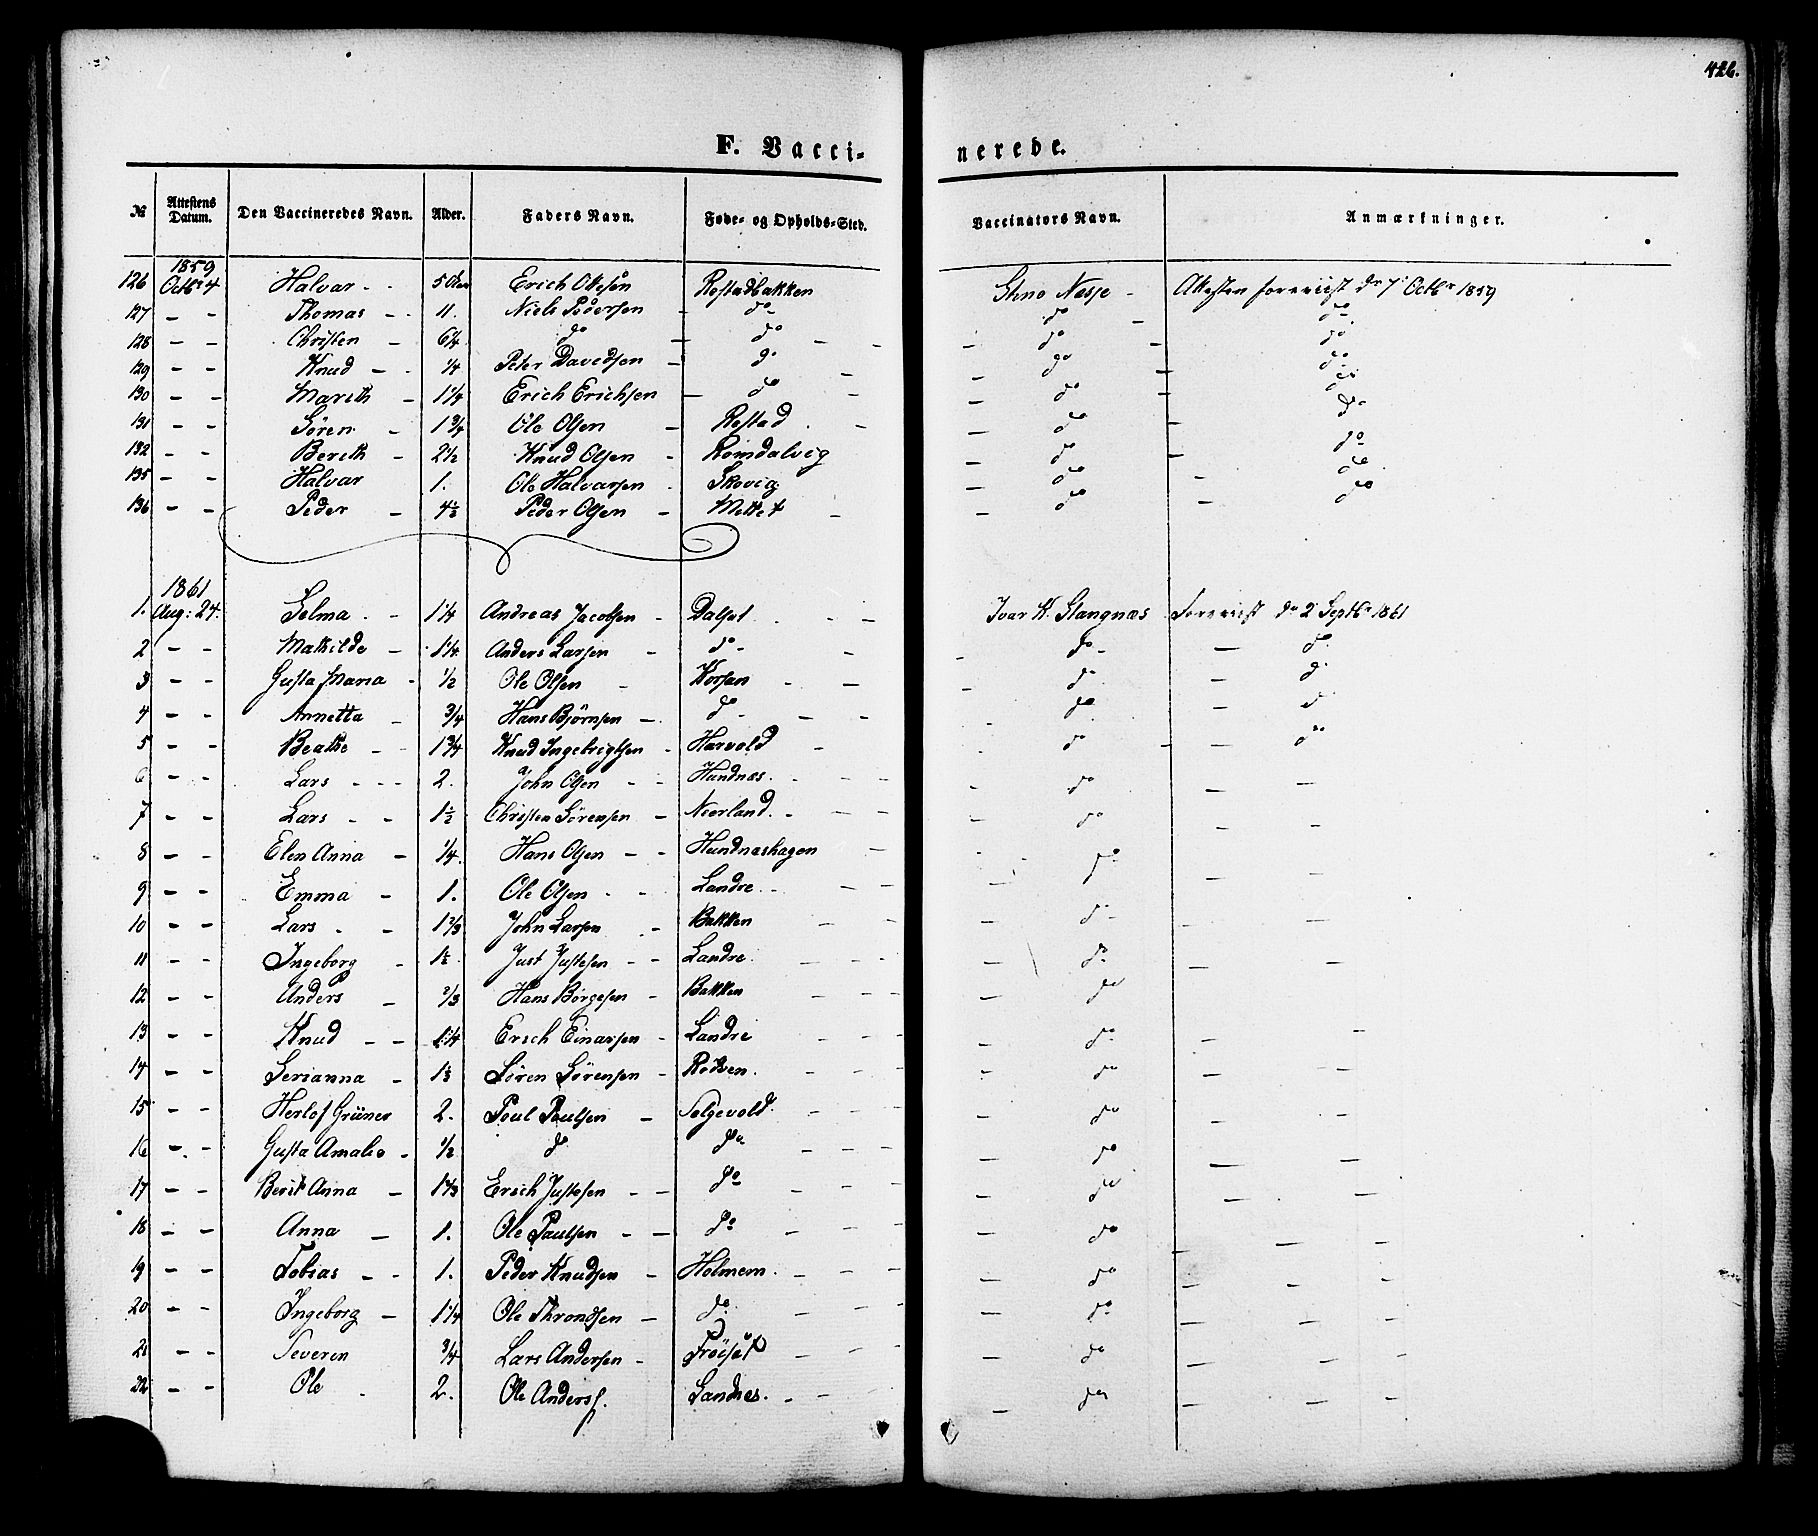 426.
F. Vaccinerede.
№ | Attestens Datum. | Den Vaccineredes Navn. | Alder. | Faders Navn. | Føde- og Opholds-Sted. | Vaccinators Navn. | Anmærkninger.
1859
126 Octbr 4 Halvar - - 5 Erich Rostadbakken Nesje - Attesten foreviist d. 7 Octbr 1859
127 - - Thomas - - 11. Niels Pedersen - do do - do
128 - - Christen - 6 1/4 do - do - - - do - do
129 - - Knud - - 1/4 Peter Davedsen - do - - do - do
130 - - Marith - 1 1/4 Erich Erichsen - do - - do - do
131 - - Søren - 1 3/4 Ole Olsen - Rostad . - - do - do
132 - - Berith - 2 1/2 Knud Olsen - Romdalvig - do - do
135 - - Halvar 1. Ole Halvarsen - Skovig - do - do
136 - - Peder - 4 1/2 Peder Olsen - Mettet - - do - do
1861
1. Aug: 24. Selma . - 1 1/4 Andreas Jacobsen - Dalset . - - Ivar K. Stangnæs Foreviist d. 2 Septbr 1861
2 - - Mathilde - 1 1/4 Anders Larsen - do - - - do - - do
3 - - Gusta Maria - 1/2 Ole Olsen - Korsan - - - do - do
4 - - Annetta - 3/4 Hans Bjørnsen - do - - - - do - do
5 - - Beathe - - 1 3/4 Knud Ingebrigtsen - Harvold - - do - - do
6 - - Lars - - - 2. John Olsen - - Hundnæs. - - - do - -
7 - - Lars - - 1 1/2 Christen Sørensen - Nierland. - - - do - -
8 - - Elen Anna - 1/4. Hans Olsen - - Hundnæshagen - - - do - -
9 - - Emma - 1. Ole Olsen - - Landre - - - - do - -
10 - - Lars . - 1 2/3 John Larsen . - Bakken - - do - - -
11 - - Ingeborg - 1 1/2 . Just Justesen - - Landre . - do - -
12 - - Anders - 2/3 Hans Børgesen - Bakken - - - - do - -
13 - - Knud - - 1 1/4 Erich Einarsen - Landre - - do - -
14 - - Serianna - 1 1/3 Søren Sørensen - Rødsen . - - - do - -
15 - - Herlof Grüner 2. Poul Paulsen - Solgevold. - - - - do - -
16 - - Gusta Amalie - 1/2 do do - - - - do - -
17 - - Berit Anna - 1 2/3 Erich Justesen - - do - - - - do - -
18 - - Anna - 1. Ole Paulsen - - do - - - do - - -
19 - - Tobias - - 1. Peder Knudsen - Holmem. - - - - do - - -
20 - - Ingeborg - 1 1/4 Ole Throndsen - do. - - - do - - -
21 - - Severin 3/4 Lars Andersen - Frøiset - - - do - - -
22 - - Ole . 2. Ole Anderss. Sandnes. - - - do - - -